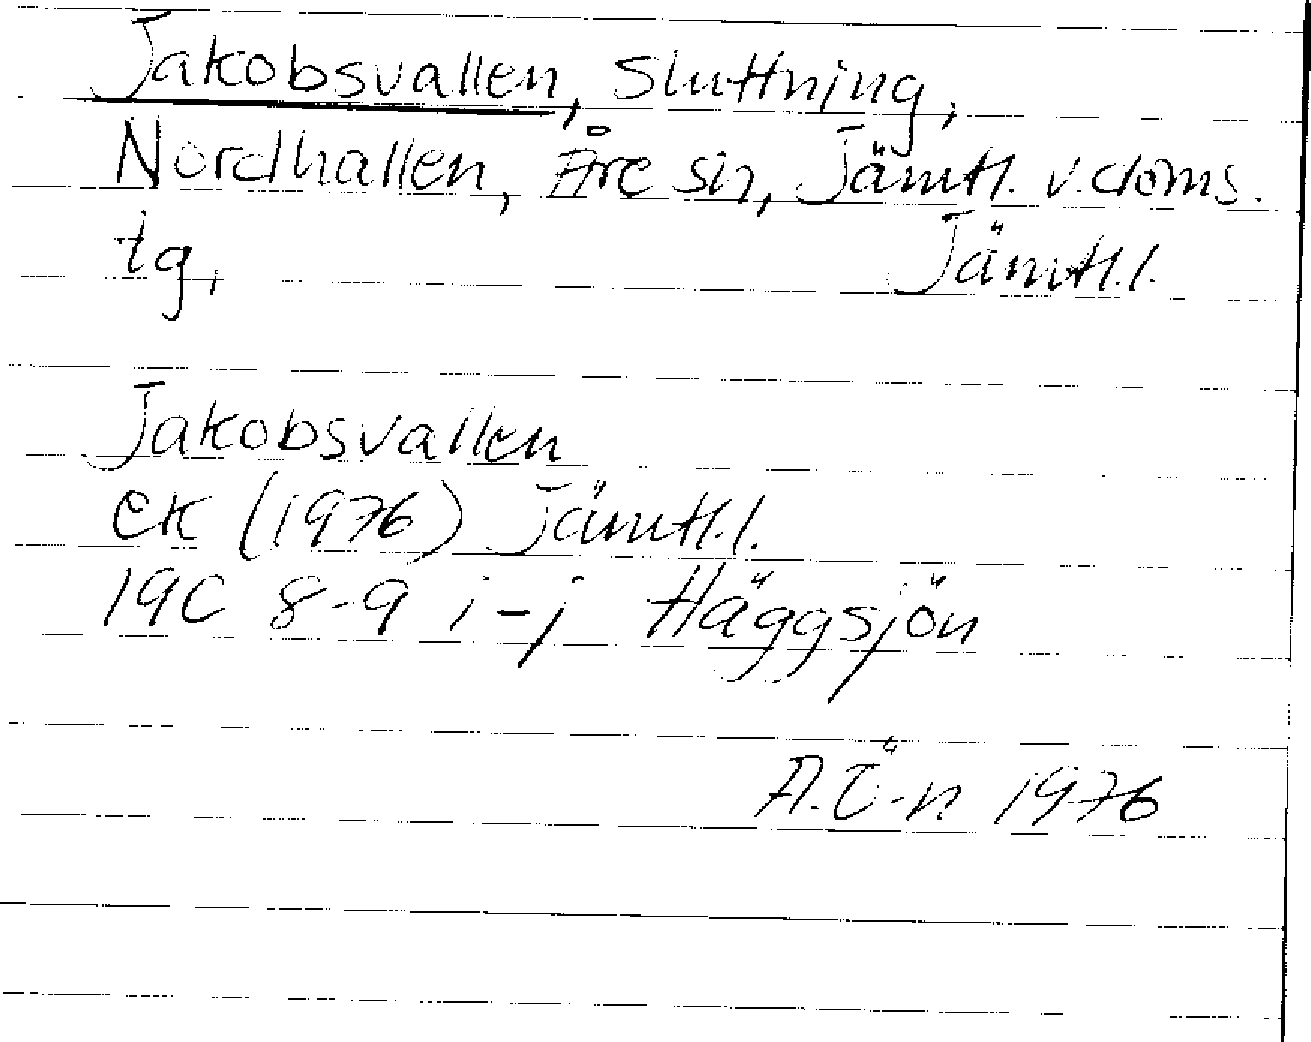 Jakobsvallen, Sluttning,
Nordhallen, Åre sn, Jämtl. v. doms.
tg, Jämtl.l.
Jakobsvallen
ek (1976) Jämtl.l.
19C 8-9 i-j Häggsjön
A.Ö-n 1976